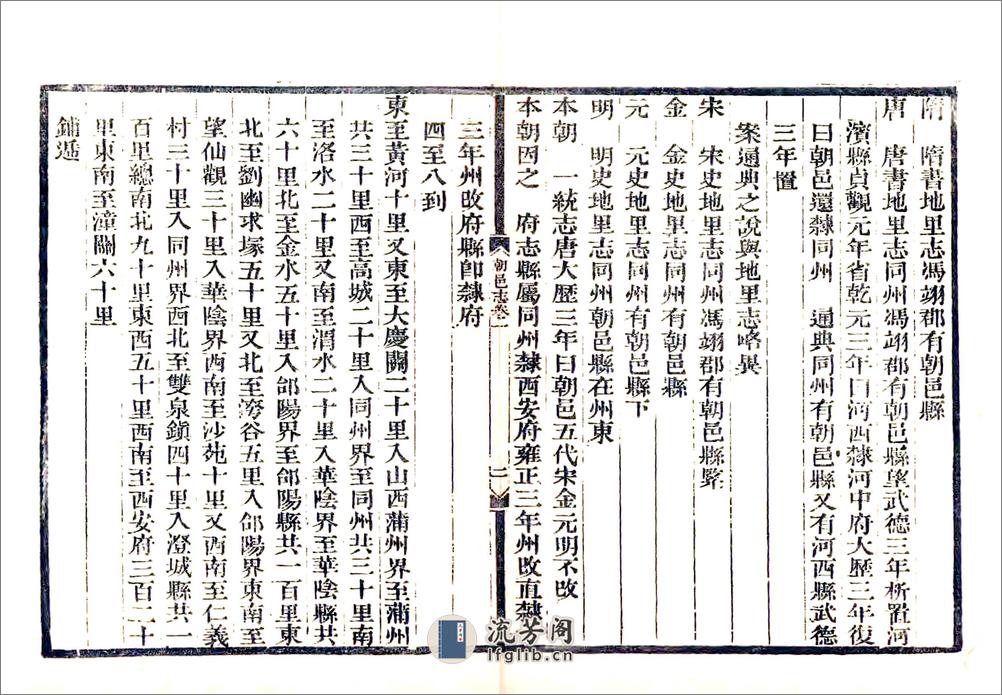 隋　隋書地里志馮翊郡有朝邑縣
唐　唐書地里志同州馮翊郡有朝邑縣望武德三年析置河
濱縣貞觀元年省乾元三年曰河西隸河中府大歷三年復
曰朝邑還隸同州　通典同州有朝邑縣又有河西縣武德
三年置
案通典之說與地里志略異
宋　宋史地里志同州馮翊郡有朝邑縣緊
金　金史地里志同州有朝邑縣
元　元史地里志同州有朝邑縣下
明　明史地里志同州朝邑縣在州東
本朝　一統志唐大歷三年曰朝邑五代宋金元明不改
本朝因之　府志縣屬同州隸西安府雍正三年州改直隸
朝邑志卷一
二
三年州改府縣卽隸府
四至八到
東至黃河十里又東至大慶關二十里入山西蒲州界至蒲州
共三十里西至高城二十里入同州界至同州共三十里南
至洛水二十里又南至渭水二十里入華陰界至華陰縣共
六十里北至金水五十里入郃陽界至郃陽縣共一百里東
北至劉幽求塚五十里又北至灣谷五里入郃陽界東南至
望仙觀三十里入華陰界西南至沙苑十里又西南至仁義
村三十里入同州界西北至雙泉鎮四十里入澄城縣共一
百里總南北九十里東西五十里西南至西安府三百二十
里東南至潼關六十里
鋪遞
流芳阁
lfglib.cn